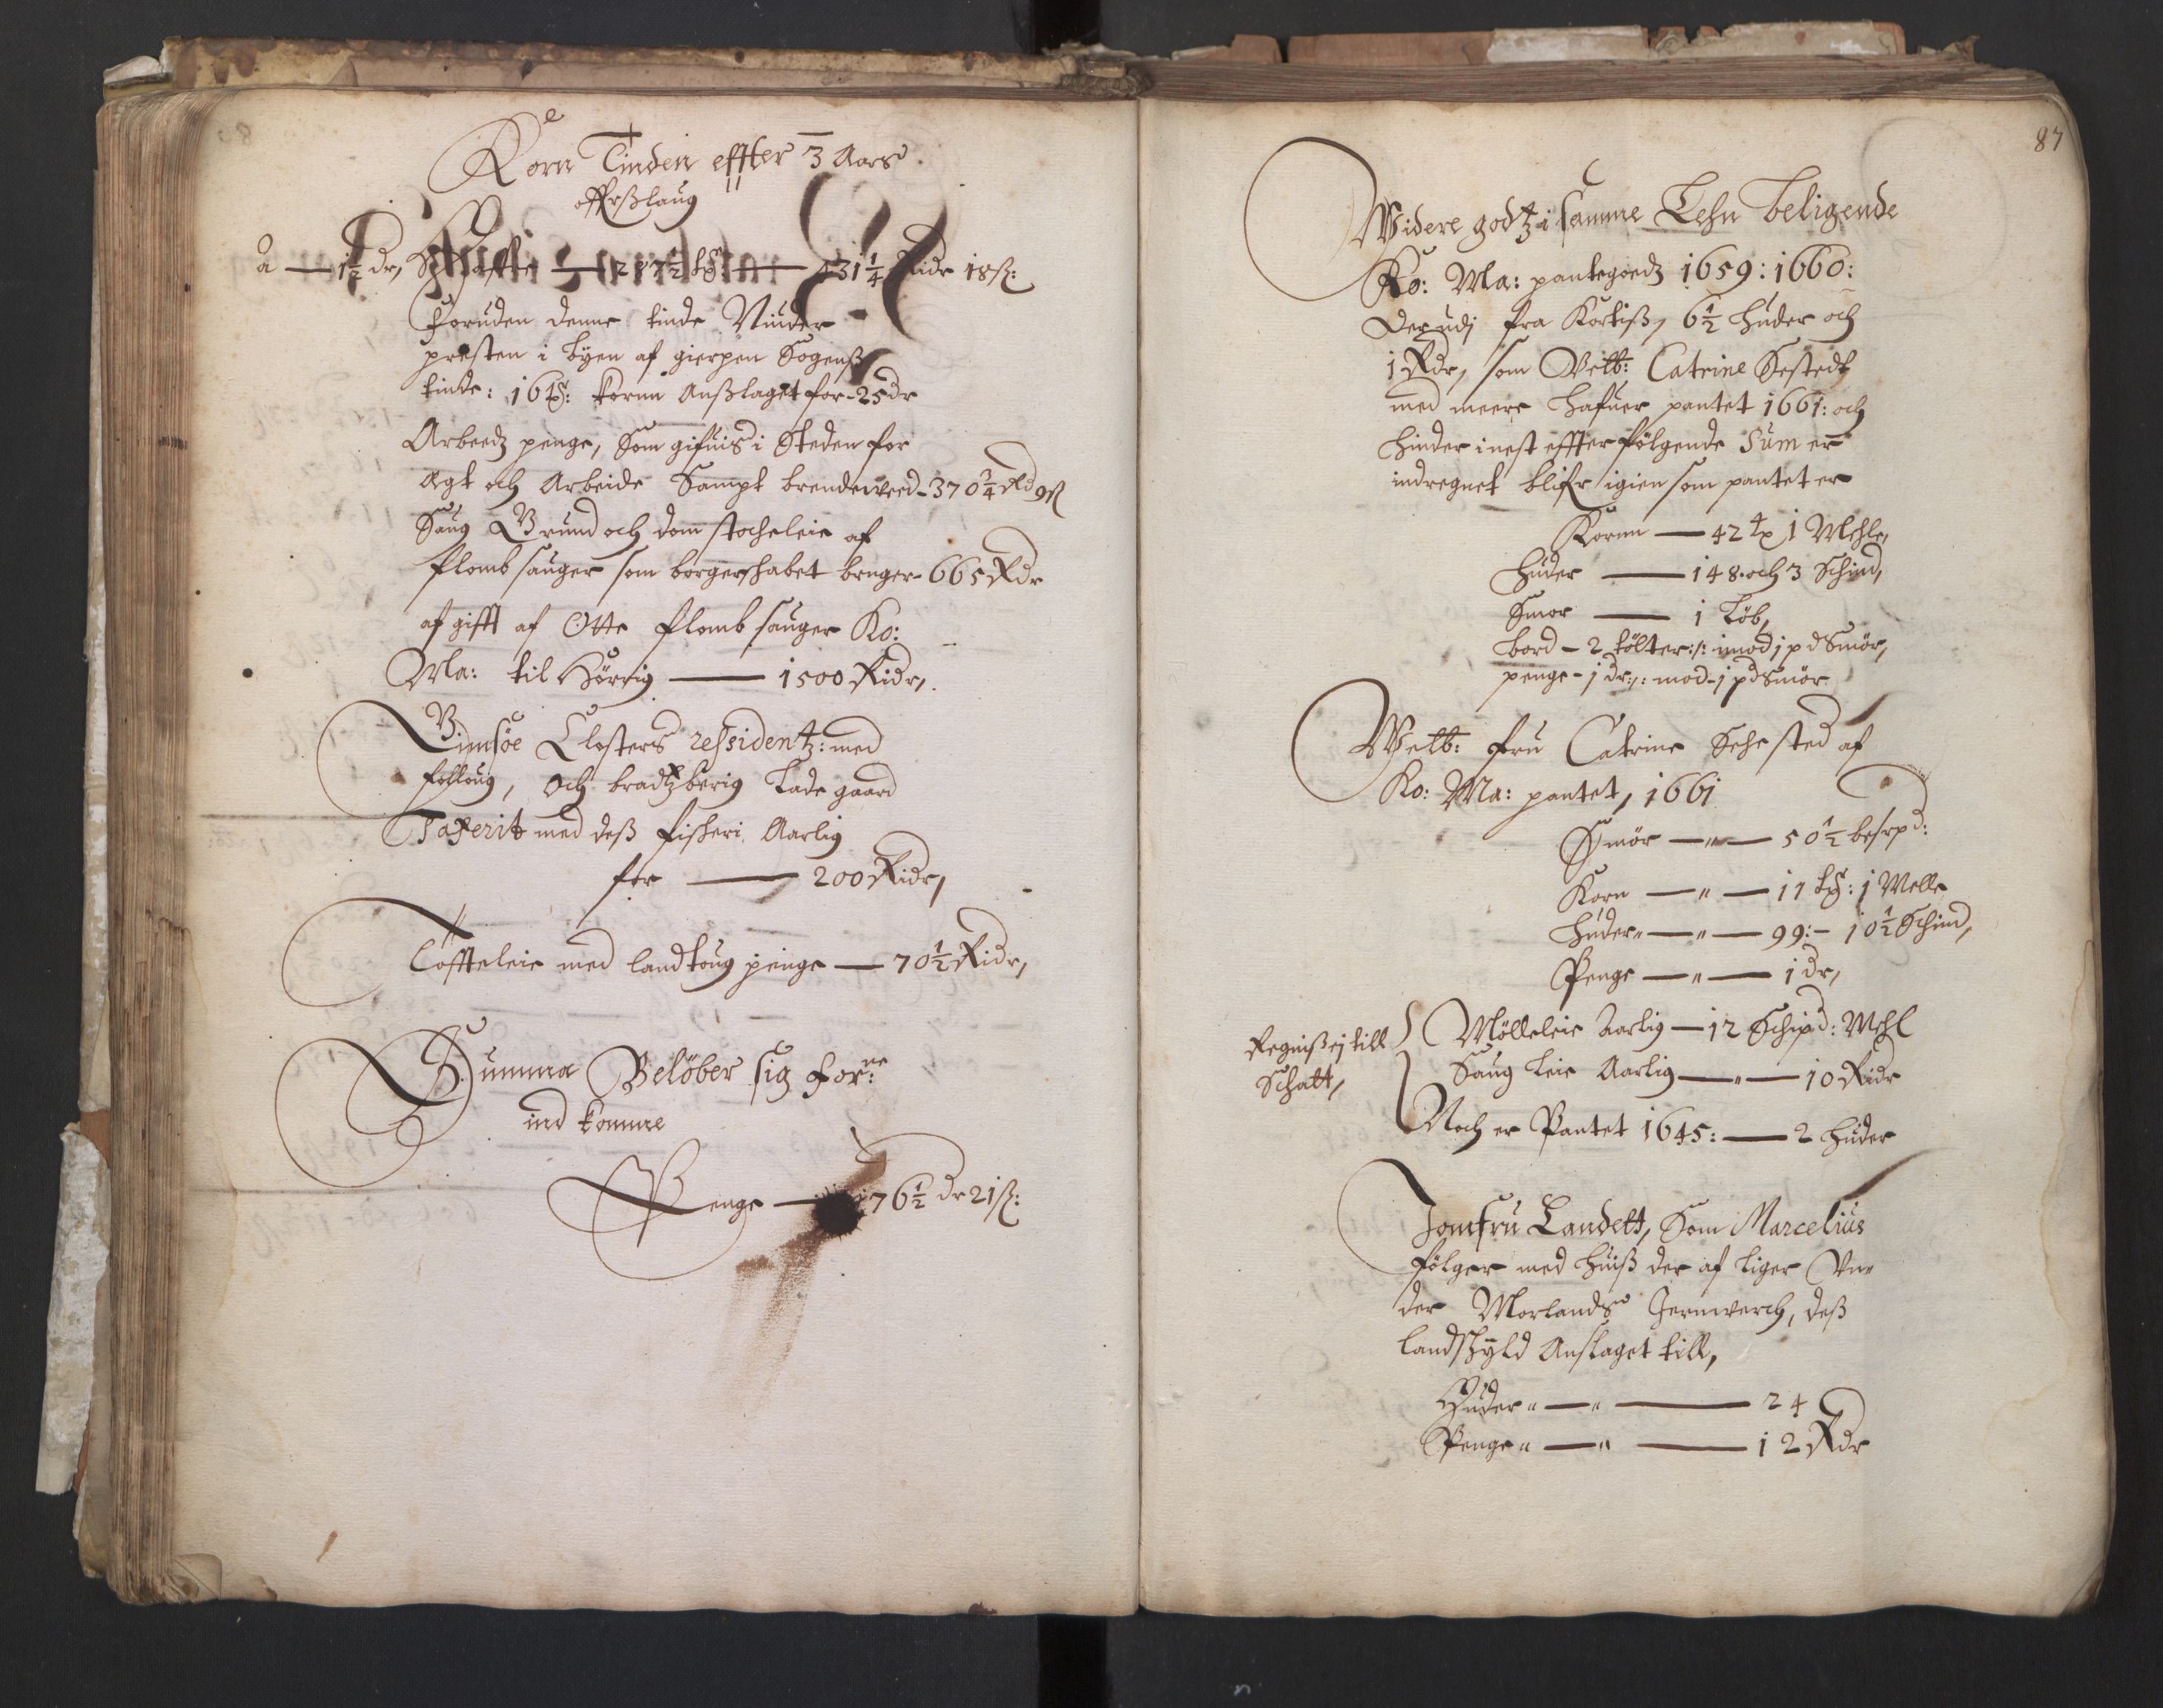 Korn Tinden effter 3 Aars
offuerslaug
a — 1½ dr, — 287½ tr — 431¼ Ridr 18 ß:
Foruden denne tinde Niuder
presten i byen af gierpen Sogens
tinde: 16 tr: Kornn Anslaget for - 25 dr
Arbeedz penge, Som gifuis i Steden for
Agt och Arbeide Sampt brendeveed - 370¾ Rd 9 ß
Saug Grund och dom stocheleie af
flomb sauger som borgerskabet bruger - 665 Rdr
af gifft af Otte flomb sauger Ko:
Ma: til Hörrig — 1500 Ridr,
Gimsøe Closters residentz: med
follaug, och bradtzberig Lade gaard
Taxerit med dess fiskeri Aarlig
for — 200 Ridr,
Töffteleie med landtoug penge — 70½ Ridr,
Summa Belöber sig for:ne
ind komme
Penge — 76½ dr 21 ß:
87
Widere godtz i samme Lehn beligende
Ko: Ma: pantegoedz 1659: 1660:
Der udj fra Kortiss, 6½ huder och
1 Rdr, som Velb: Catrine Sestedt
med meere hafuer pantet 1661: och
hinder i nest effterfölgende Sum er
indregnet blifr igien som pantet er
Kornn — 42 tr 1 Mehle,
huder — 148. och 3 Schind,
Smør — 1 Löb,
bord - 2 tölter:/: imod 1 pd Smör,
penge - 1 dr:/: mod - 1 pd Smör
Welb: fru Catrine Sehested af
Ko: Ma: pantet, 1661
Smör — " — 50½ besrpd:
Korn — " — 17 tr: 1 Melle
huder " — " — 99: - 10½ Schind,
Penge — " — 1 dr,
Regniss ej till
Schatt,
Mölleleie Aarlig — 12 Schipd: Mehl
Saug Leie Aarlig — " — 10 Ridr
Noch er Pantet 1645: — 2 huder
Jomfru Landett, Som Marcelius
fölger med huiss der af liger Un"
der Morlands Jernverch, dess
landskyld Anslaget till,
Huder " — " — 24
Penge " — " — 12 Rdr